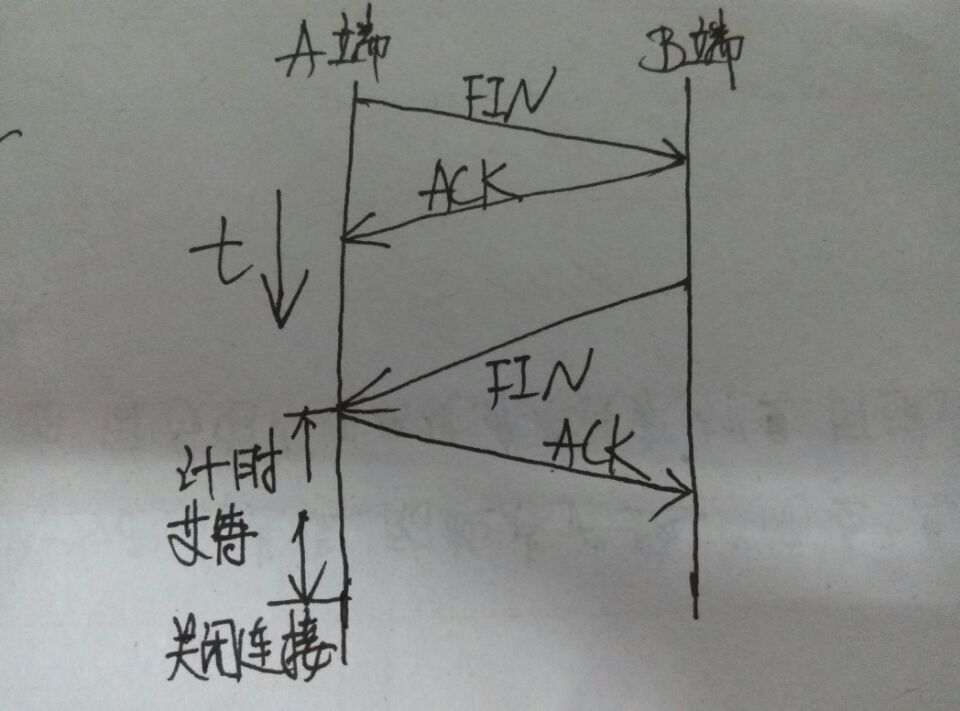 A端
B端
FIN
ACK
t
FIN
ACK
计时
关闭连接